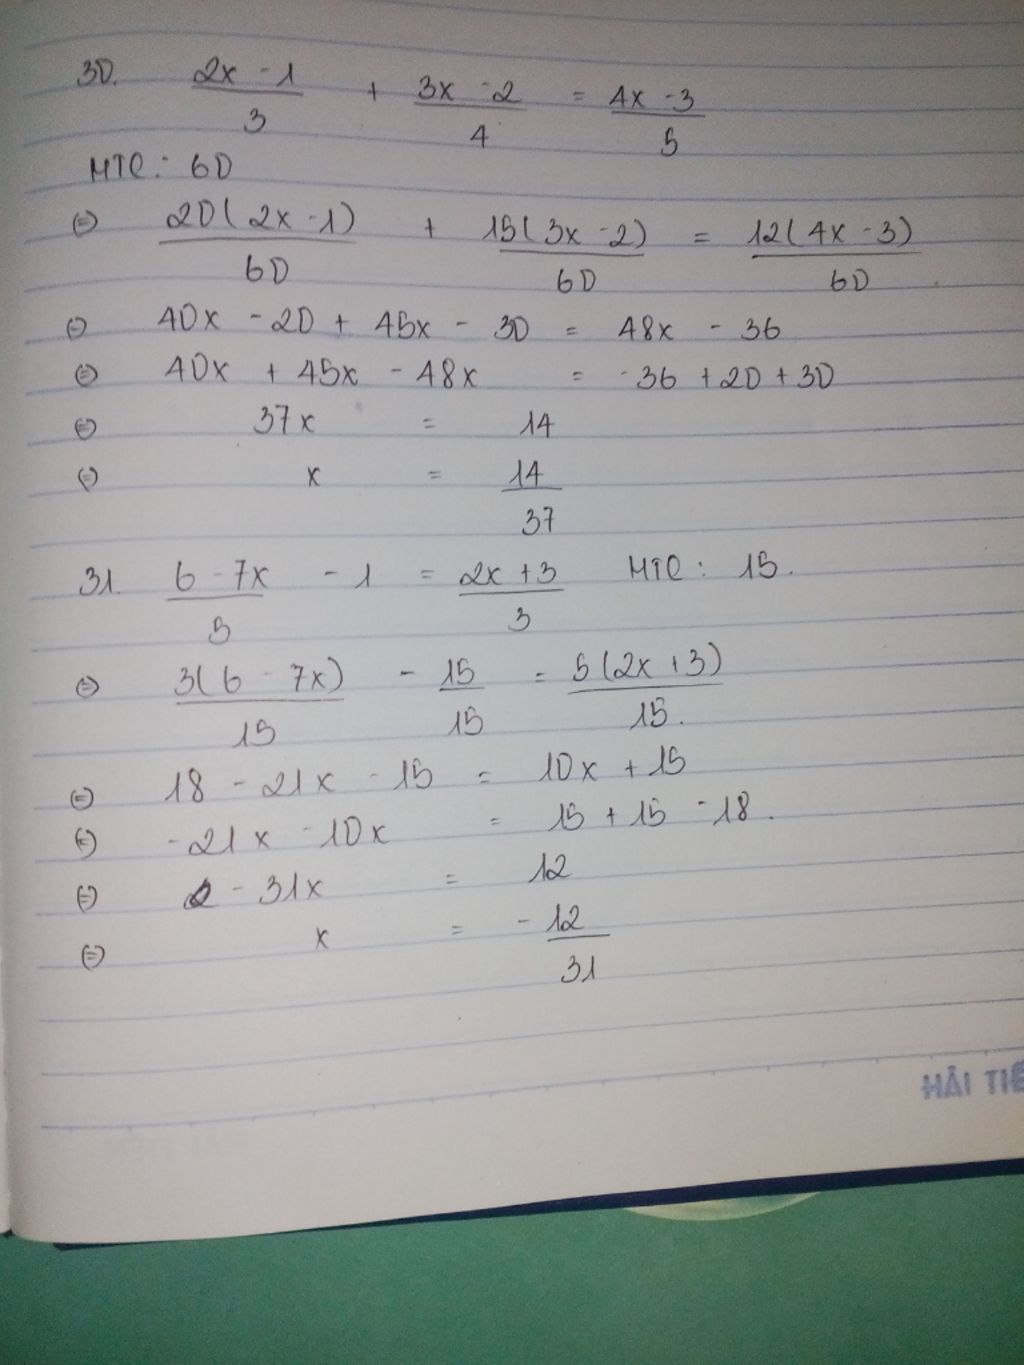 30. (2x - 1)/3 + (3x - 2)/4 = (4x - 3)/5
MTC: 60
⇔ 20(2x - 1)/60 + 15(3x - 2)/60 = 12(4x - 3)/60
⇔ 40x - 20 + 45x - 30 = 48x - 36
⇔ 40x + 45x - 48x = -36 + 20 + 30
⇔ 37x = 14
⇔ x = 14/37
31. (6 - 7x)/5 - 1 = (2x + 3)/3 MTC: 15.
⇔ 3(6 - 7x)/15 - 15/15 = 5(2x + 3)/15.
⇔ 18 - 21x - 15 = 10x + 15
⇔ -21x - 10x = 15 + 15 - 18.
⇔ - 31x = 12
⇔ x = -12/31
HẢI TIẾ